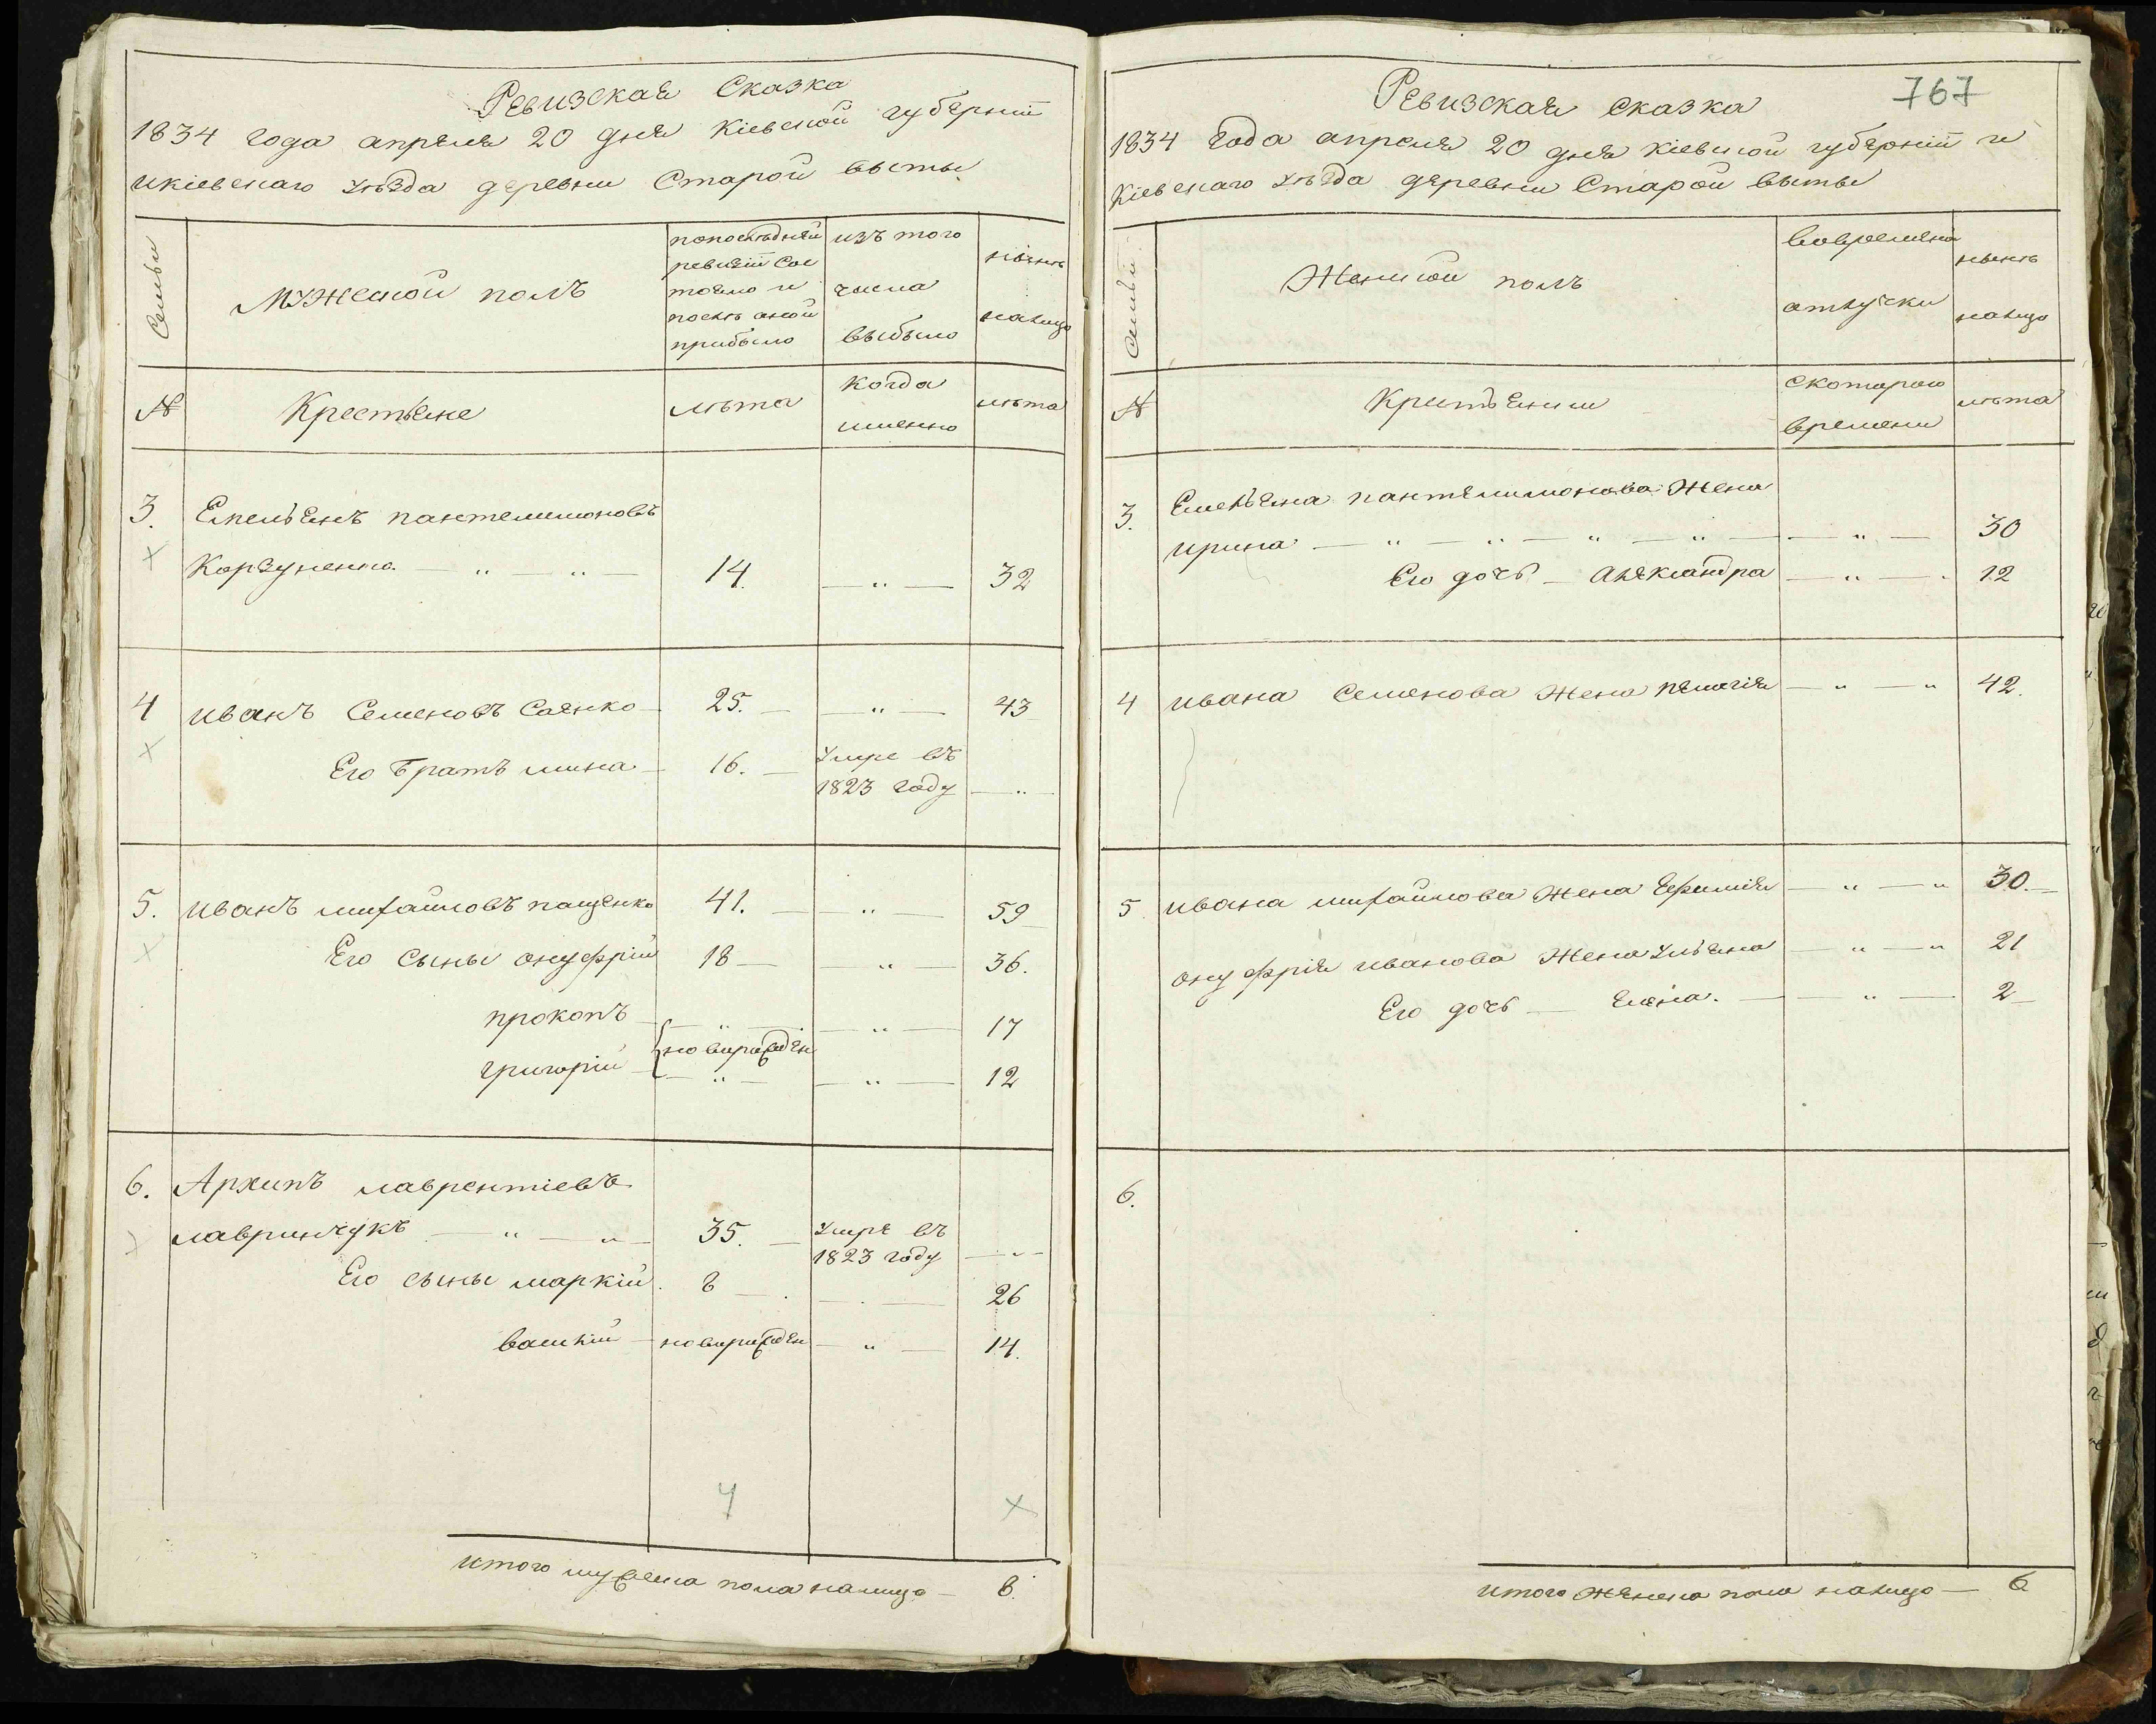 Ревизская Сказка
1834 года апреля 20 дня Кіевской губерніи
икіевскаго уѣзда деревни Старой высты
Семьи
Мужеской полъ
попослѣдней
ревизіи сос
тояло и
послѣ оной
прибыло
изъ того
числа
выбыло
нынѣ
налицо
№
Крестьяне
лѣта
когда
именно
лѣта
3.
Емельянъ пантелимоновъ
Корзуненко — " — " —
14.
— " —
32
4
иванъ Семеновъ Саенко
25. —
— " —
43
Его братъ мина —
16. —
Умре въ
1823 году
— " —
5.
иванъ михайловъ пащенко
41. —
— " —
59
Его сыны онуфрій
18 —
— " —
36.
прокопъ
— " —
— " —
17
новорожден
григорій —
— " —
— " —
12
6.
Архипъ лаврентіевъ
лавринчукъ — " — " —
35. —
Умре въ
1823 году
— " —
Его сыны маркій.
8 —
— " —
26
василій —
новорожден
— " —
14.
4
х
итого мужеска пола налицо — 8.
767
Ревизская Сказка
1834 года апреля 20 дня Кіевской губерніи и
Кіевскаго уѣзда деревни Старой высты
Семьи
Женской полъ
вовременной
отлучки
нынѣ
налицо
№
Крестьянки
скотораго
времени
лѣта
3.
Емельяна пантелимонова Жена
ирина — " — " — " — " —
— " —
30
Его дочь — Александра
— " —
12
4
ивана Семенова Жена пелагія
— " — "
42.
5
ивана михайлова Жена Ефимія
— " — "
30. —
онуфрія иванова Жена Ульяна
— " — "
21
Его дочь — Елена. —
— " —
2 —
6.
итого Женска пола налицо — 6